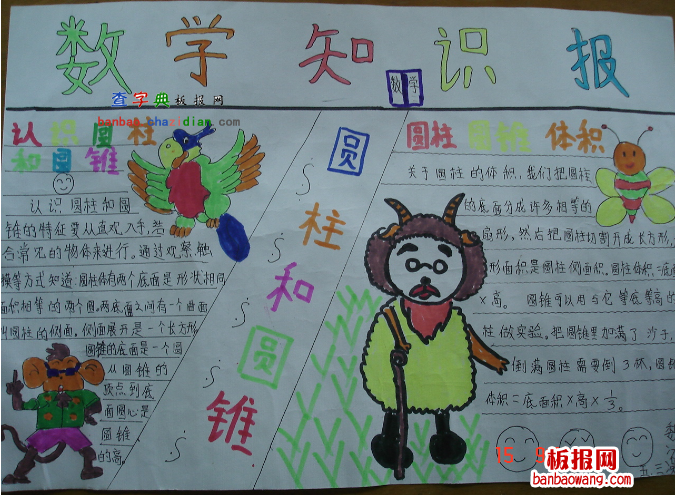 数学知识报
数学
查字典板报网
banbao.chazidian.com
认识圆柱
和圆锥
认识圆柱和圆
锥的特征要从直观入手,结
合常见的物体来进行。通过观察,触
摸等方式知道:圆柱体有两个底面是形状相同
面积相等的两个圆,两底面之间有一个曲面
叫圆柱的侧面。侧面展开是一个长方形
圆锥的底面是一个圆
从圆锥的
顶点到底
面圆心是
圆锥
的高。
圆柱和圆锥
圆柱圆锥体积
关于圆柱的体积,我们把圆柱
的底面分成许多相等的
扇形,然后把圆柱切割开成长方形,
形面积是圆柱侧面积。圆柱体积=底面
×高。圆锥可以用与它等底等高的
柱做实验,把圆锥里加满了沙子,
倒满圆柱需要倒3杯,圆锥
体积=底面积×高×1/3。
15 9
板报网
banbaowang.com